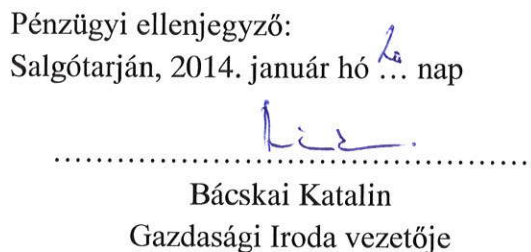 Pénzügyi ellenjegyző:
Salgótarján, 2014. január hó 20 nap
Bácskai Katalin
Gazdasági Iroda vezetője